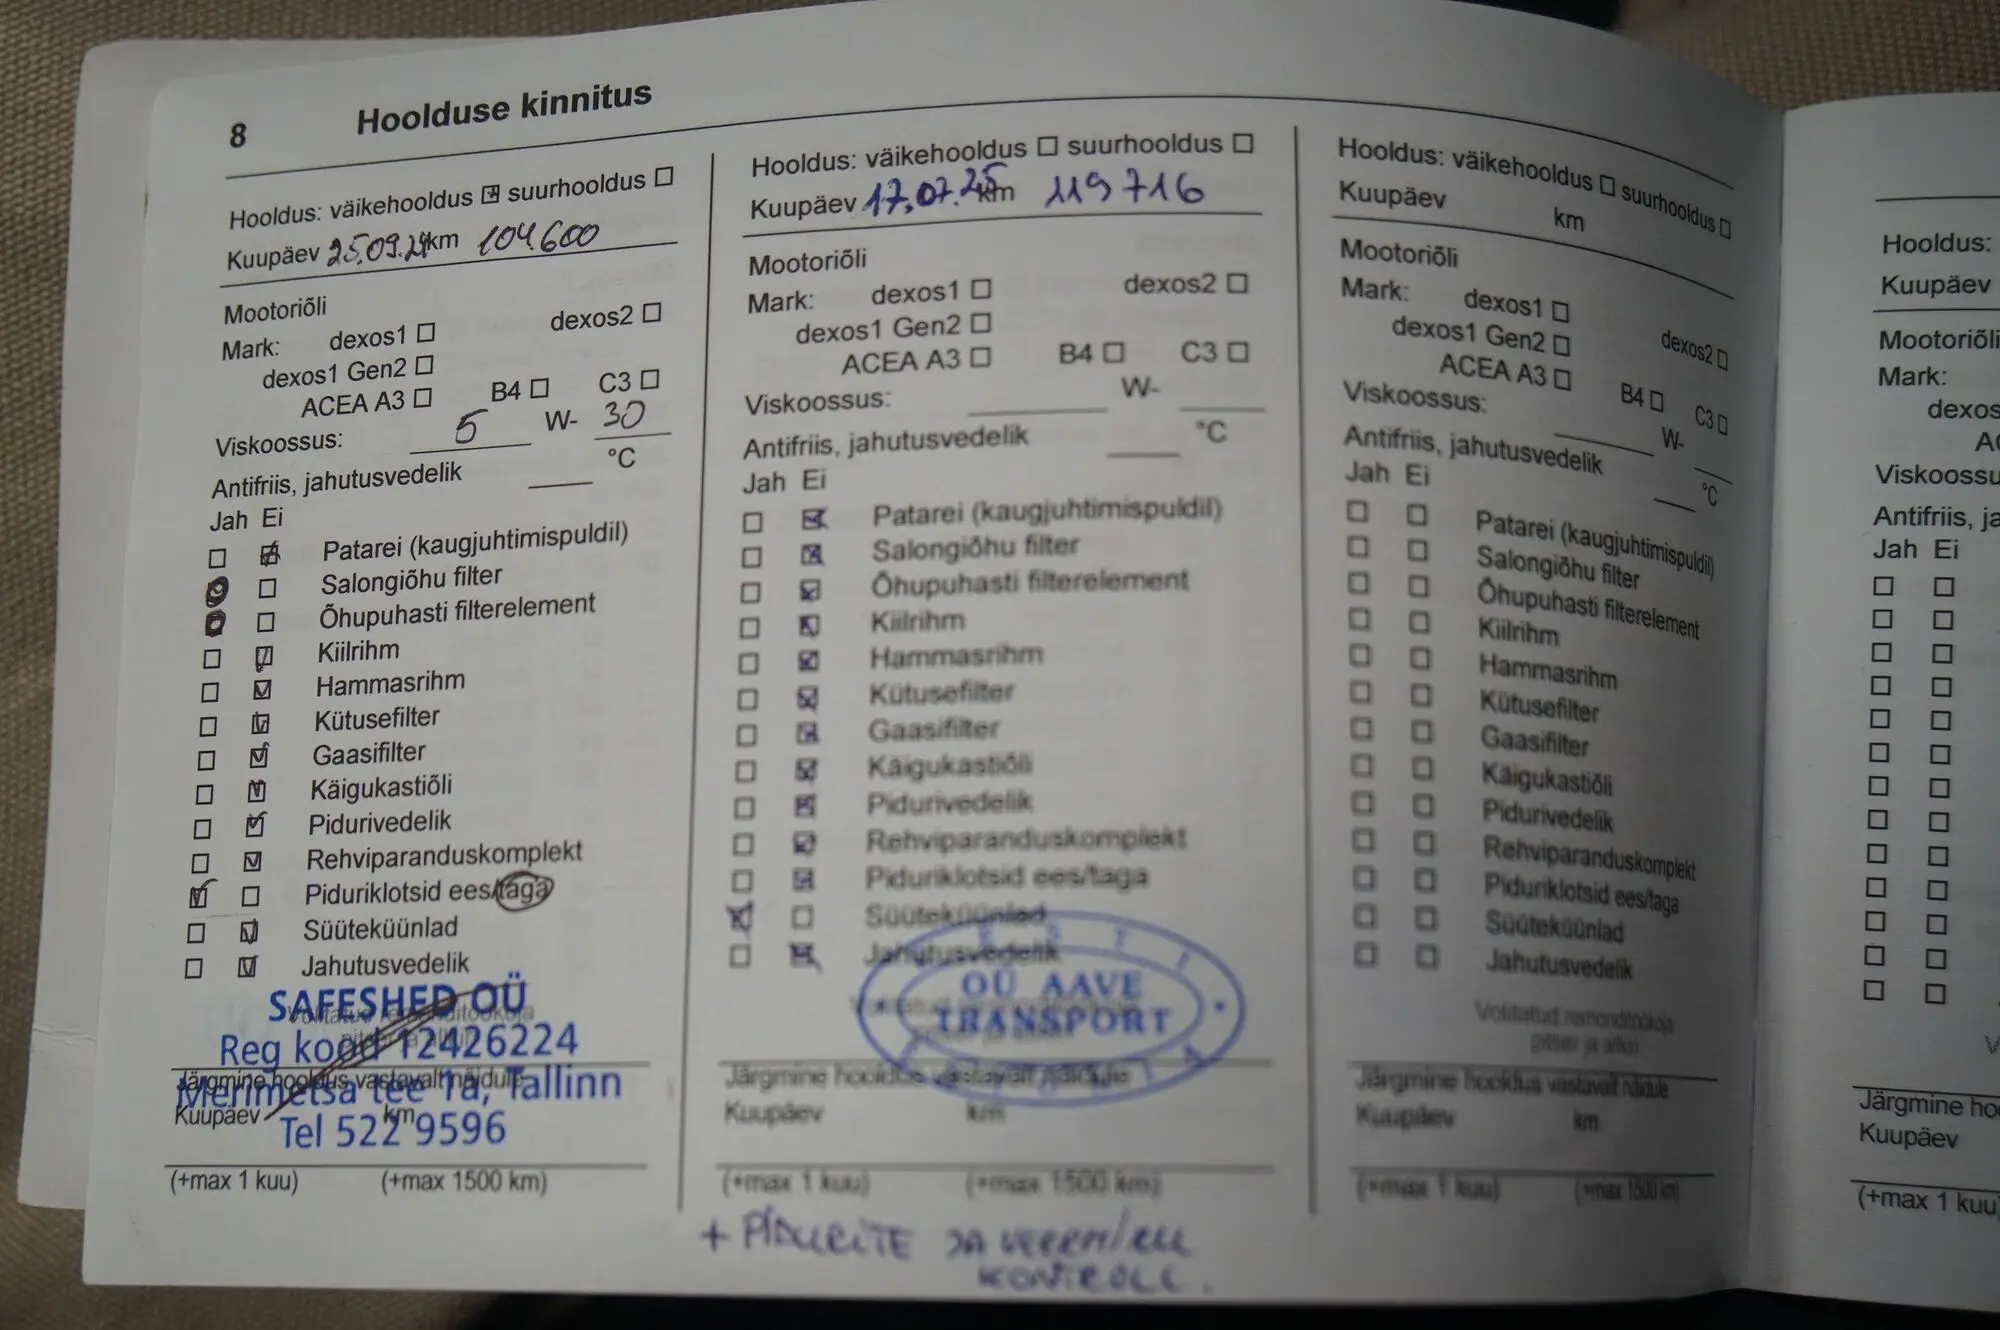 8 Hoolduse kinnitus
Hooldus: väikehooldus ☒ suurhooldus ☐
Kuupäev 25.09.24 km 104600
Mootoriõli
Mark: dexos1 ☐ dexos2 ☐
dexos1 Gen2 ☐
ACEA A3 ☐ B4 ☐ C3 ☐
Viskoossus: 5 W- 30
Antifriis, jahutusvedelik °C
Jah Ei
Patarei (kaugjuhtimispuldil)
Salongiõhu filter
Õhupuhasti filterelement
Kiilrihm
Hammasrihm
Kütusefilter
Gaasifilter
Käigukastiõli
Pidurivedelik
Rehviparanduskomplekt
Piduriklotsid ees/taga
Süüteküünlad
Jahutusvedelik
SAFESHED OÜ
Reg kood 12426224
Merimetsa tee 1a, Tallinn
Tel 522 9596
Järgmine hooldus vastavalt näidule
Kuupäev km
(+max 1 kuu) (+max 1500 km)
Hooldus: väikehooldus ☐ suurhooldus ☐
Kuupäev 17.07.25 km 119716
Mootoriõli
Mark: dexos1 ☐ dexos2 ☐
dexos1 Gen2 ☐
ACEA A3 ☐ B4 ☐ C3 ☐
Viskoossus: W-
Antifriis, jahutusvedelik °C
Jah Ei
Patarei (kaugjuhtimispuldil)
Salongiõhu filter
Õhupuhasti filterelement
Kiilrihm
Hammasrihm
Kütusefilter
Gaasifilter
Käigukastiõli
Pidurivedelik
Rehviparanduskomplekt
Piduriklotsid ees/taga
Süüteküünlad
Jahutusvedelik
EESTI
OÜ AAVE
TRANSPORT
Järgmine hooldus vastavalt näidule
Kuupäev km
(+max 1 kuu) (+max 1500 km)
+ PIDURITE JA VEERMIKU
KONTROLL.
Hooldus: väikehooldus ☐ suurhooldus ☐
Kuupäev km
Mootoriõli
Mark: dexos1 ☐ dexos2 ☐
dexos1 Gen2 ☐
ACEA A3 ☐ B4 ☐ C3 ☐
Viskoossus: W-
Antifriis, jahutusvedelik °C
Jah Ei
Patarei (kaugjuhtimispuldil)
Salongiõhu filter
Õhupuhasti filterelement
Kiilrihm
Hammasrihm
Kütusefilter
Gaasifilter
Käigukastiõli
Pidurivedelik
Rehviparanduskomplekt
Piduriklotsid ees/taga
Süüteküünlad
Jahutusvedelik
Volitatud remonditöökoja
pitser ja allkiri
Järgmine hooldus vastavalt näidule
Kuupäev km
(+max 1 kuu) (+max 1500 km)
Hooldus:
Kuupäev
Mootoriõli
Mark:
dexos
AC
Viskoossu
Antifriis, ja
Jah Ei
V
Järgmine ho
Kuupäev
(+max 1 kuu)